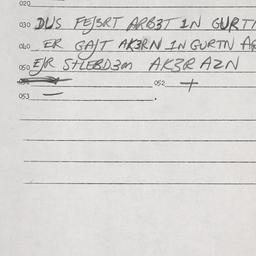 020
030 DUS FE/3RT ARBET IN GURT
040 ER GA/T AK3RN IN GURTN
050 E/R STLEBD3m AK3R AZN
052 +
053 — .